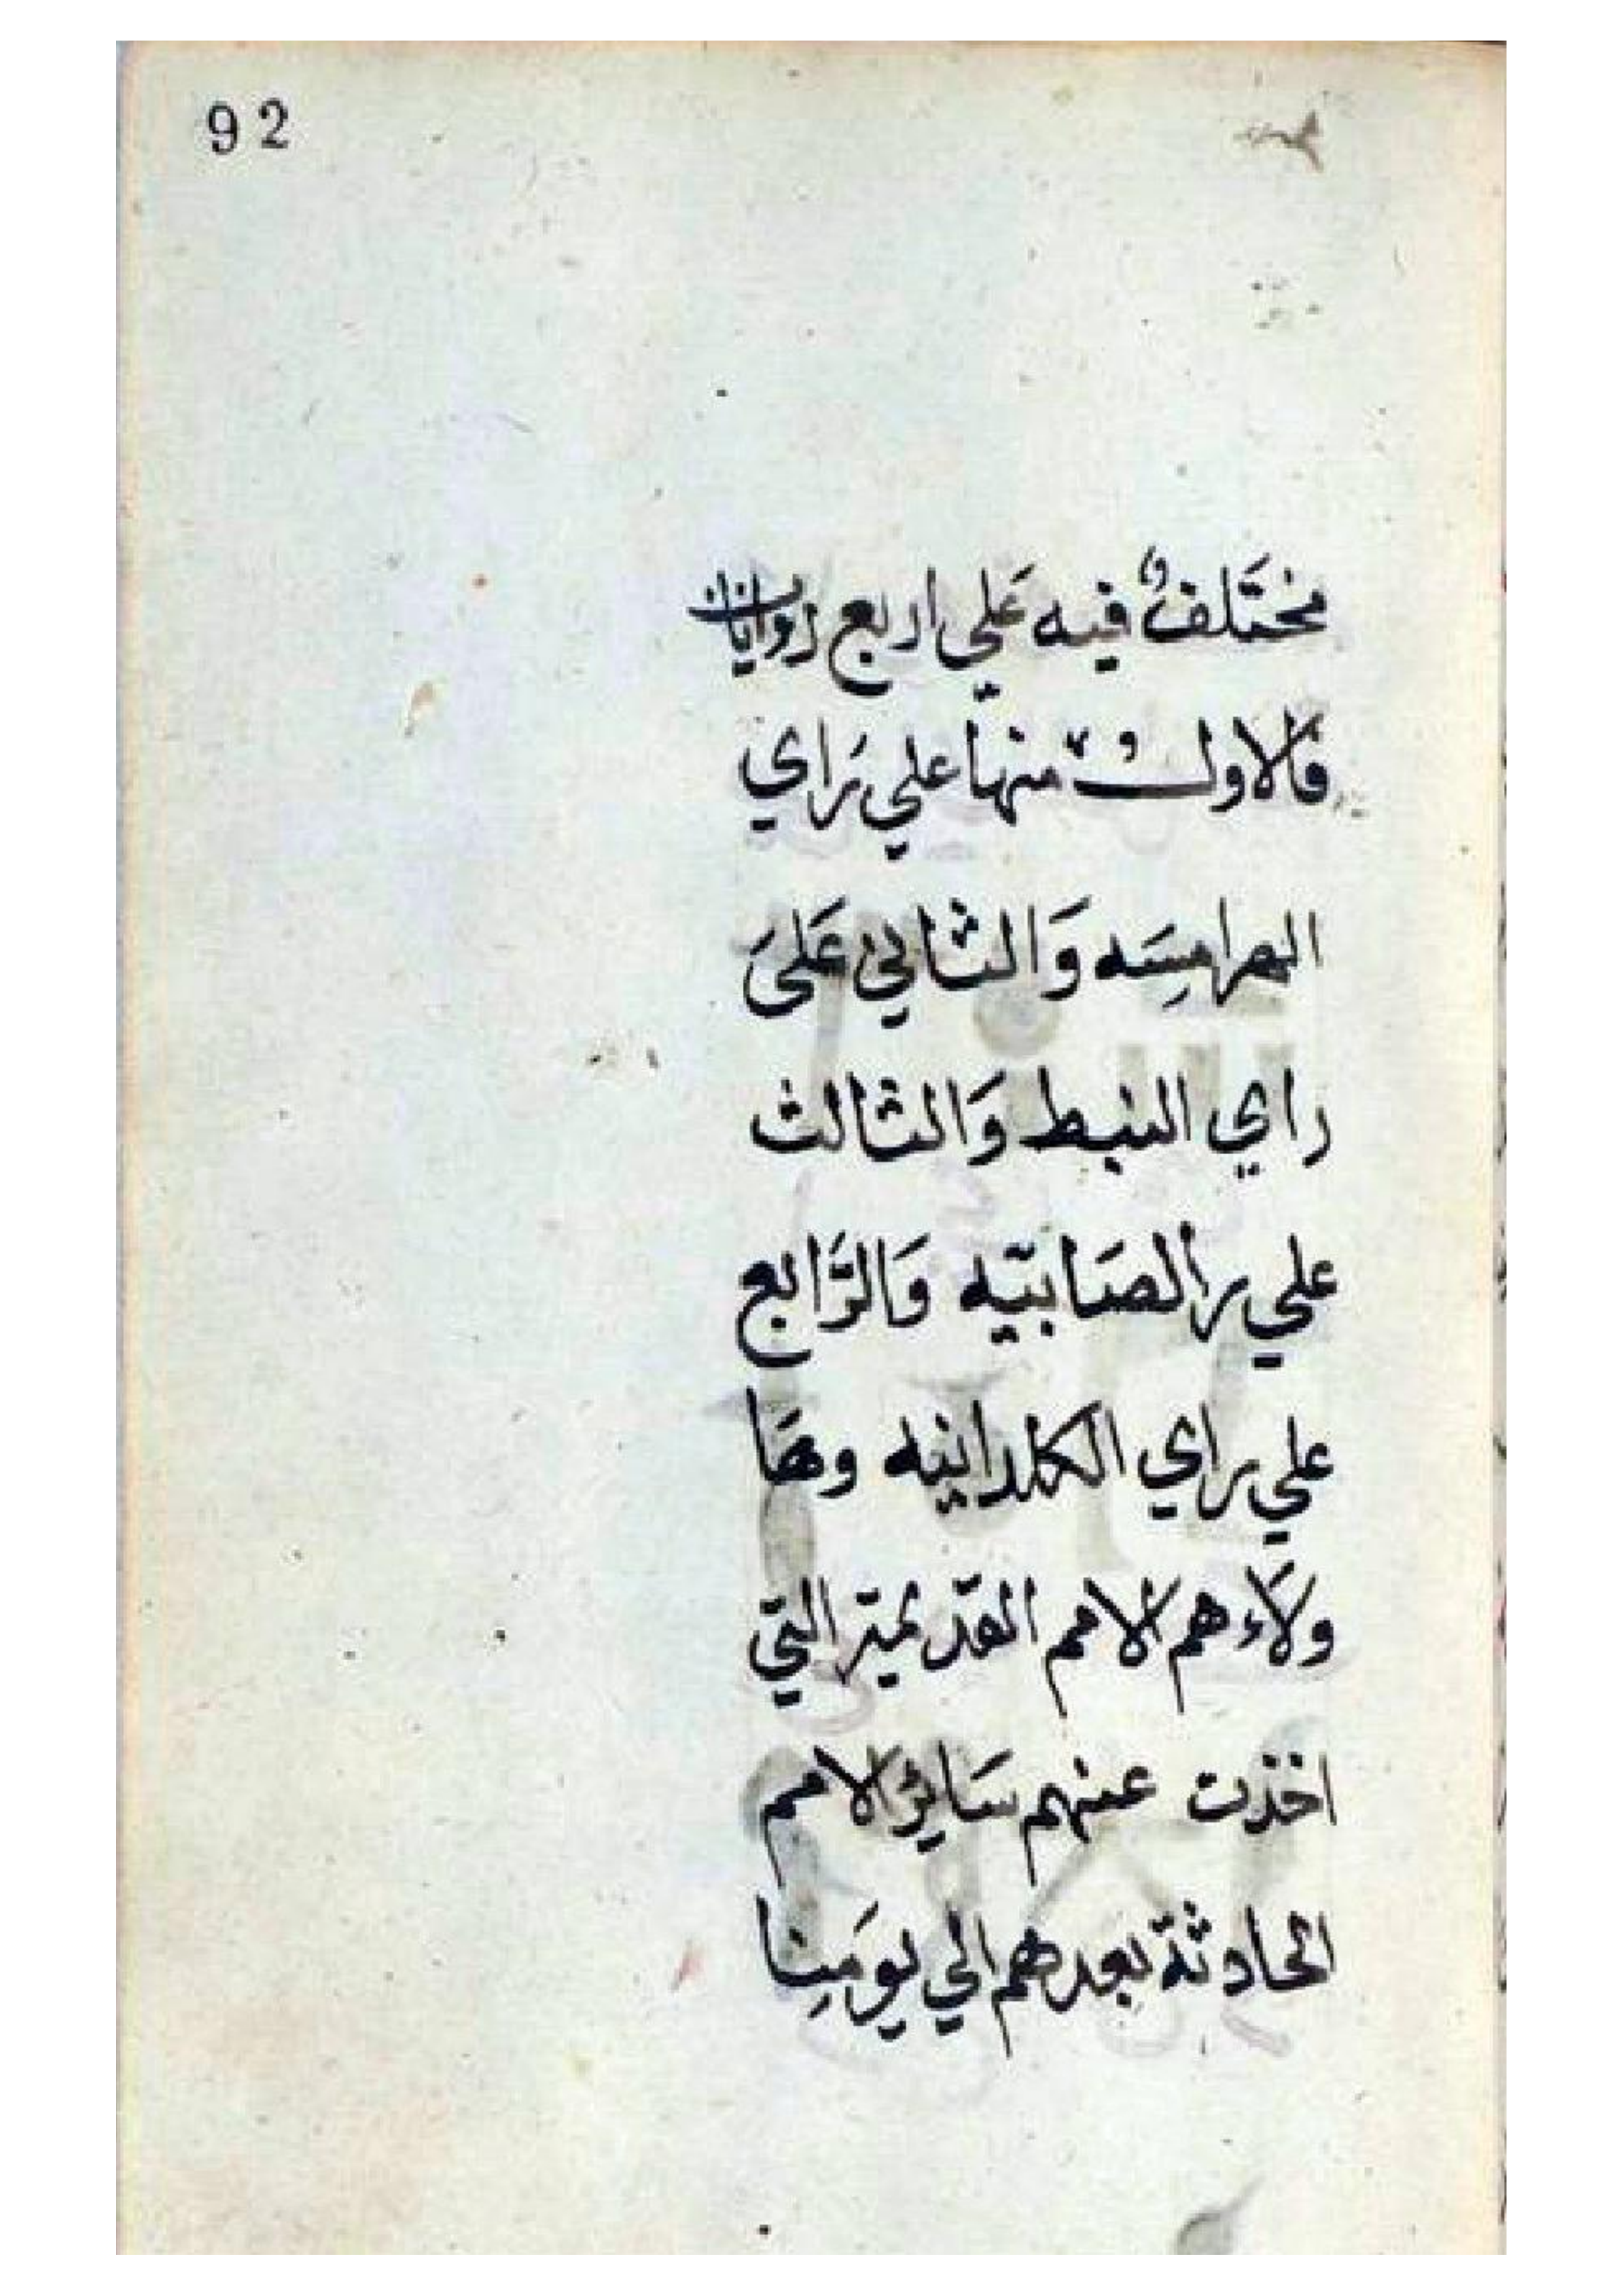 92
مختَلفٌ فيه عَلي اربع روايات
فالاولُ منها علي رَاي
الهرامسَه وَالثاني عَلىَ
راي النبط وَالثالث
علي راالصَابيَه وَالرَّابع
علي راي الكلدانيه وهَا
ولاَء هم الامم القدّيمة التي
اخذت عنهم سَايرُ الامم
الحادثة بعدهم الي يومَنِا